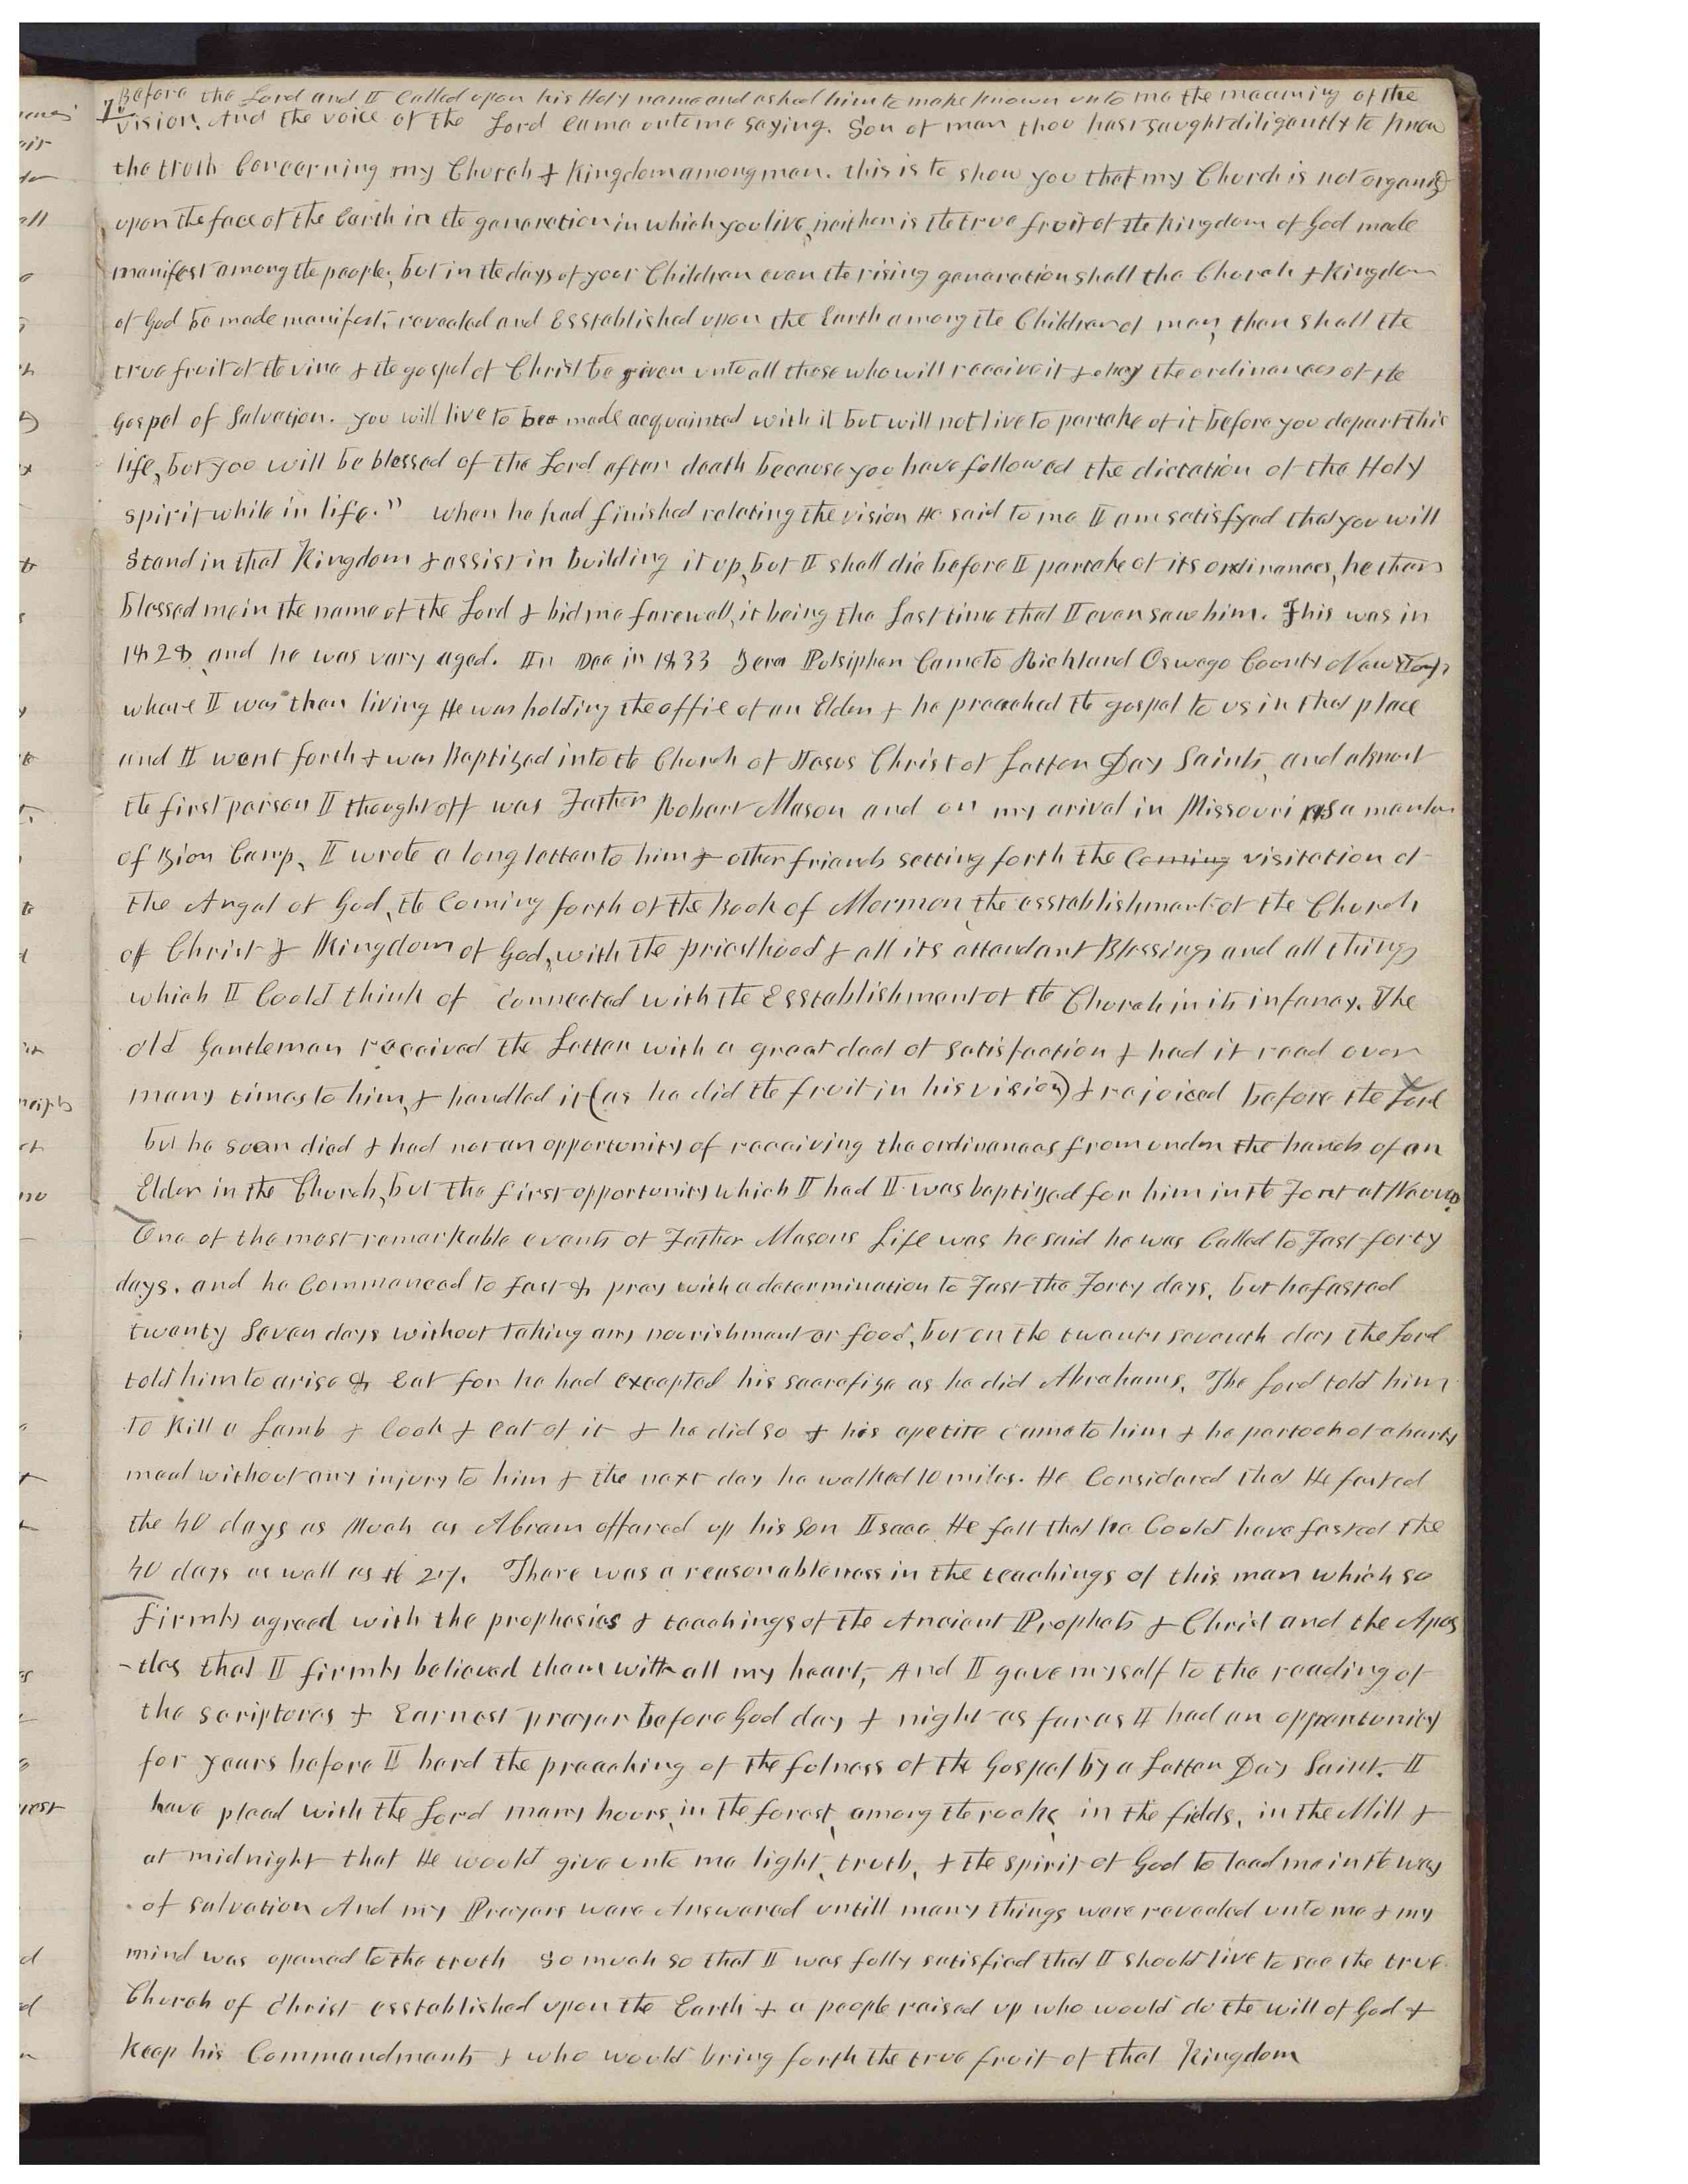 7 Before the Lord and I Called upon his Holy name and asked him to make known unto me the meaning of the
vision. And the voice of the Lord came unto me saying. Son of man thou hast saught diligently to know
the truth Concerning my Church & Kingdom among man. this is to show you that my Church is not organized
upon the face of the Earth in the generation in which you live, neither is the true fruit of the Kingdom of God made
manifest among the people; but in the days of your Children even the rising generation shall the Church & Kingdom
of God be made manifest, revealed and Esstablished upon the Earth among the Children of men, then shall the
true fruit of the vine & the gospel of Christ be given unto all those who will receive it & obey the ordinances of the
Gospel of Salvation. You will live to be made acquainted with it but will not live to partake of it before you depart this
life, but you will be blessed of the Lord after death because you have followed the dictation of the Holy
spirit while in life." When he had finished relating the vision He said to me I am satisfyed that you will
Stand in that Kingdom & assist in building it up, but I shall die before I partake of its ordinances, he then
blessed me in the name of the Lord & bid me farewell, it being the last time that I ever saw him. This was in
1828, and he was very aged. In Dec in 1833 Zera Pulsipher Came to Richland Oswego County New York
whare I was then living He was holding the offie of an Elder & he preached the gospel to us in that place
and I went forth & was Baptized into the Church of Jesus Christ of Latter Day Saints, and almost
the first person I thought off was Father Robert Mason and on my arival in Missouri as a member
of Zion Camp, I wrote a long letter to him & other friends setting forth the Coming visitation of
the Angel of God, the Coming forth of the Book of Mormon, the esstablishment of the Church
of Christ & Kingdom of God, with the priesthood & all its attendant Blessings and all things
which I Could think of Connected with the Esstablishment of the Church in its infancy. The
old Gentleman received the Letter with a great deal of satisfaction & had it read over
many times to him, & handled it (as he did the fruit in his vision) & rejoiced before the Lord
but he soon died & had not an opportunity of receiving the ordinances from under the hands of an
Elder in the Church, but the first opportunity which I had I was baptized for him in the Font at Nauvoo.
One of the most remarkable events of Father Masons Life was he said he was Called to Fast forty
days. and he Commenced to fast & pray with a determination to Fast the Forty days, but he fasted
twenty Seven days without taking any nourishment or food, but on the twenty seventh day the Lord
told him to arise & Eat for he had excepted his sacrafize as he did Abrahams. The Lord told him
to Kill a Lamb & Cook & eat of it & he did so & his apetite came to him & he partook of a harty
meal without any injury to him & the next day he walked 10 miles. He Considered that He fasted
the 40 days as Much as Abram offered up his Son Isaac He felt that he Could have fasted the
40 days as well as the 27. There was a reasonableness in the teachings of this man which so
firmly agreed with the prophesies & teachings of the Ancient Prophets & Christ and the Apos
-tles that I firmly believed them with all my heart, And I gave myself to the reading of
the scriptures & Earnest prayer before God day & night as far as I had an oppertunity
for years before I herd the preaching of the fulness of the Gospel by a Latter Day Saint. I
have plead with the Lord many hours, in the forest, among the rocks, in the fields, in the Mill &
at midnight that He would give unto me light, truth, & the spirit of God to lead me in the way
of salvation And my Prayers were Answered untill many things were revealed unto me & my
mind was opened to the truth so much so that I was fully satisfied that I should live to see the true
Church of Christ esstablished upon the Earth & a people raised up who would do the will of God &
Keep his Commandments & who would bring forth the true fruit of that Kingdom